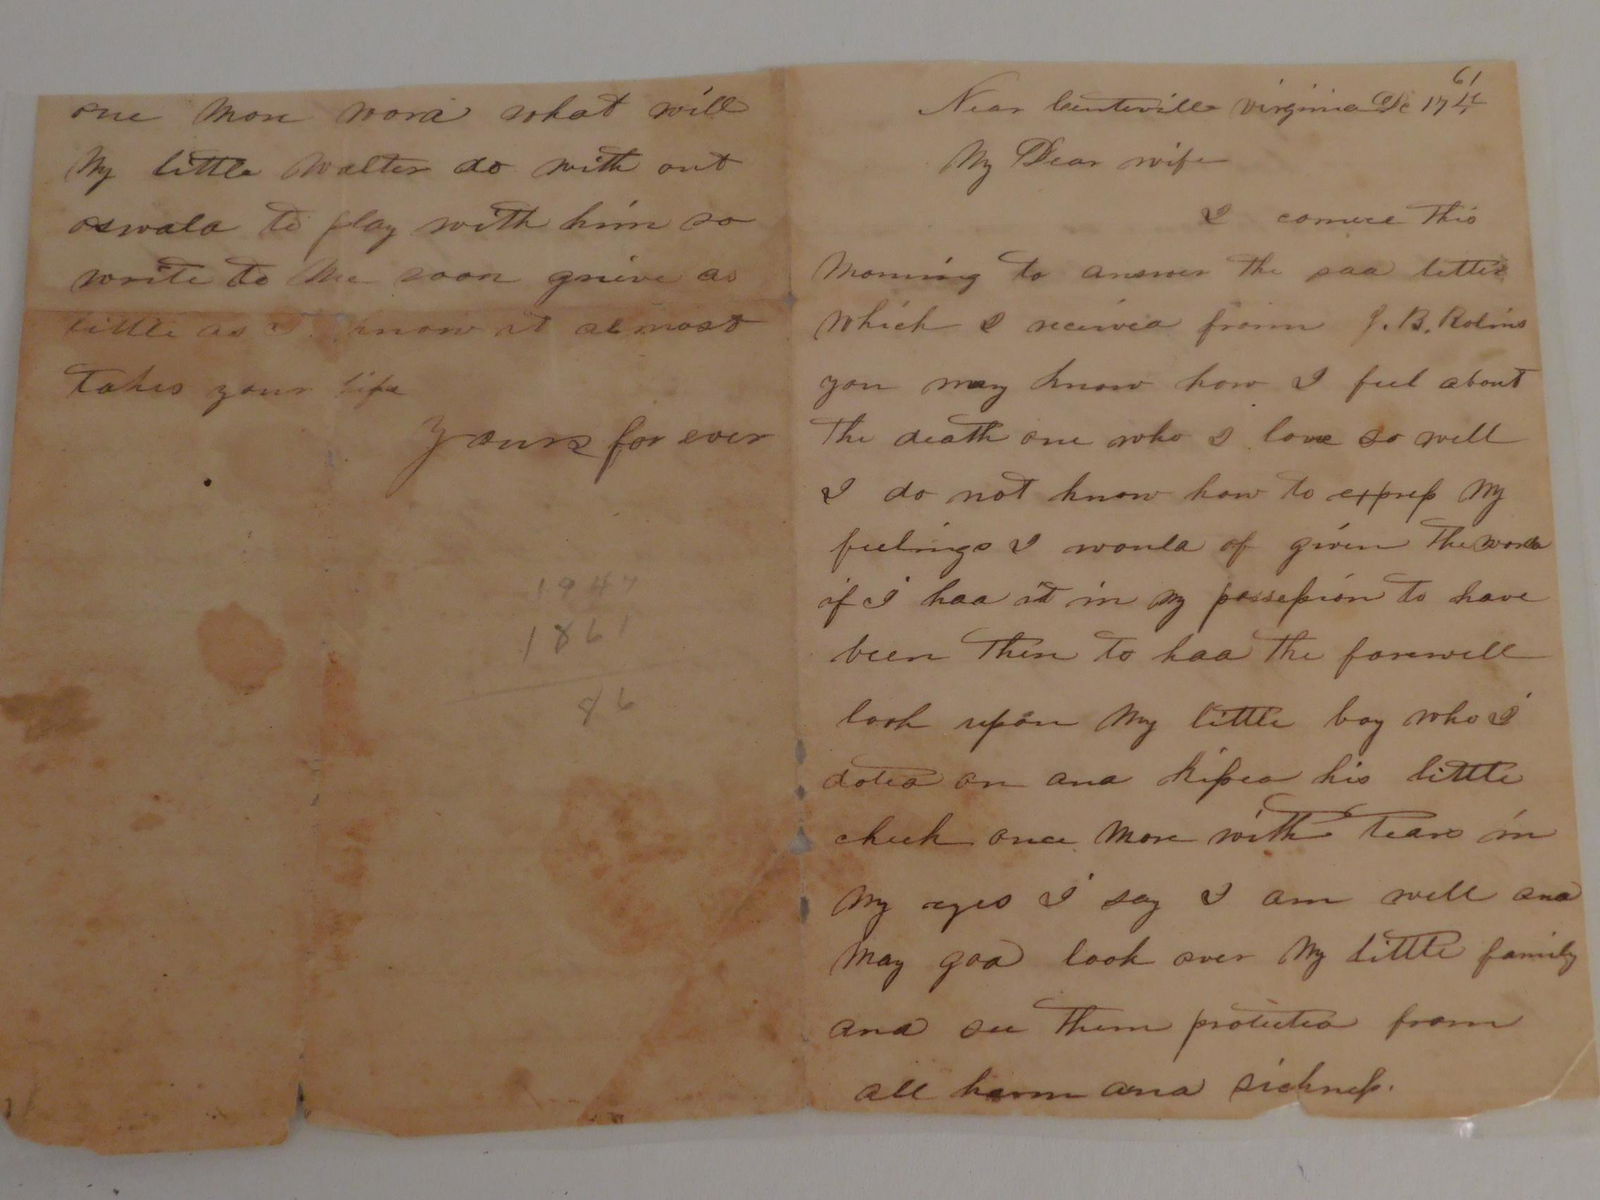 one more word what will
My little Walter do with out
oswald to play with him so
write to Me soon grieve as
little as I know it almost
takes your life
Yours for ever
1947
1861
86
61
Near Centeville Virginia De 17
My Dear wife
I comuce this
Morning to answer the sad letter
which I received fromm J. B. Robins
you may know how I feel about
the death one who I love so well
I do not know how to express My
feelings I would of given the world
if I had it in My possession to have
been then to had the farewell
look upon My little boy who I
doted on and kissed his little
cheek once More with tears in
My eyes I say I am well and
May god look over My little family
and see them protected from
all harm and sickness.